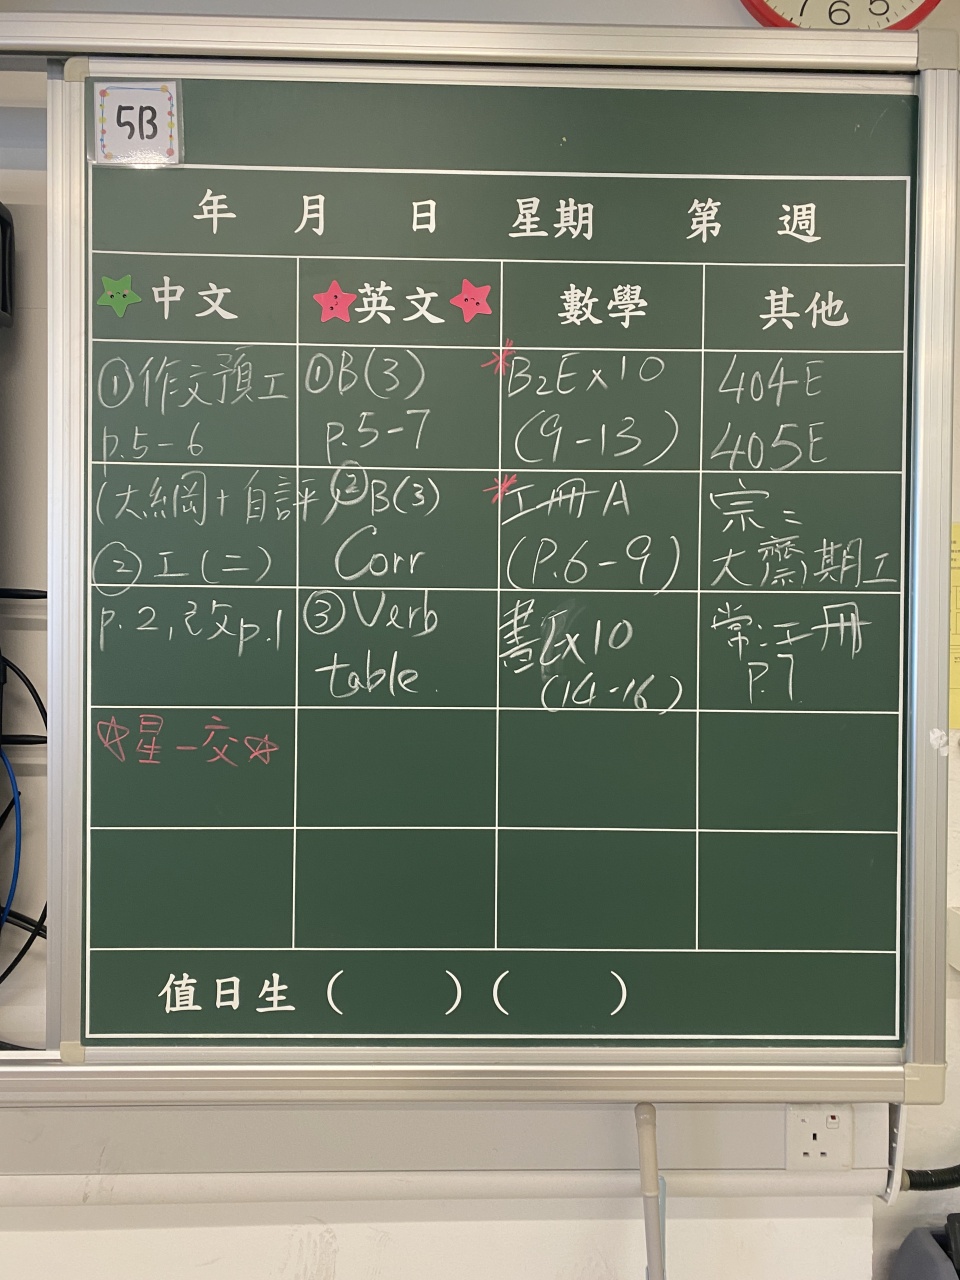 7 6 5
5B
年 月 日 星期 第 週
中文 英文 數學 其他
①作文預工
p.5-6
(大綱+自評)
②工(二)
p.2,改p.1
☆星一交☆
①B(3)
p.5-7
②B(3)
Corr
③Verb
table.
*B2Ex10
(9-13)
*工冊A
(P.6-9)
書Ex10
(14-16)
404E
405E
宗:
大齋期工
常:工冊
P.7
值日生( )( )